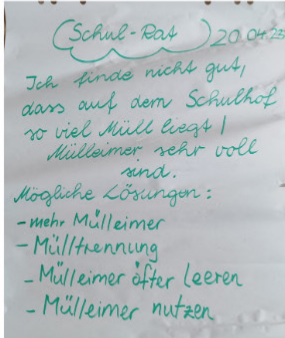 Schul-Rat 20.04.23
Ich finde nicht gut,
dass auf dem Schulhof
so viel Müll liegt /
Mülleimer sehr voll
sind.
Mögliche Lösungen:
- mehr Mülleimer
- Mülltrennung
- Mülleimer öfter leeren
- Mülleimer nutzen